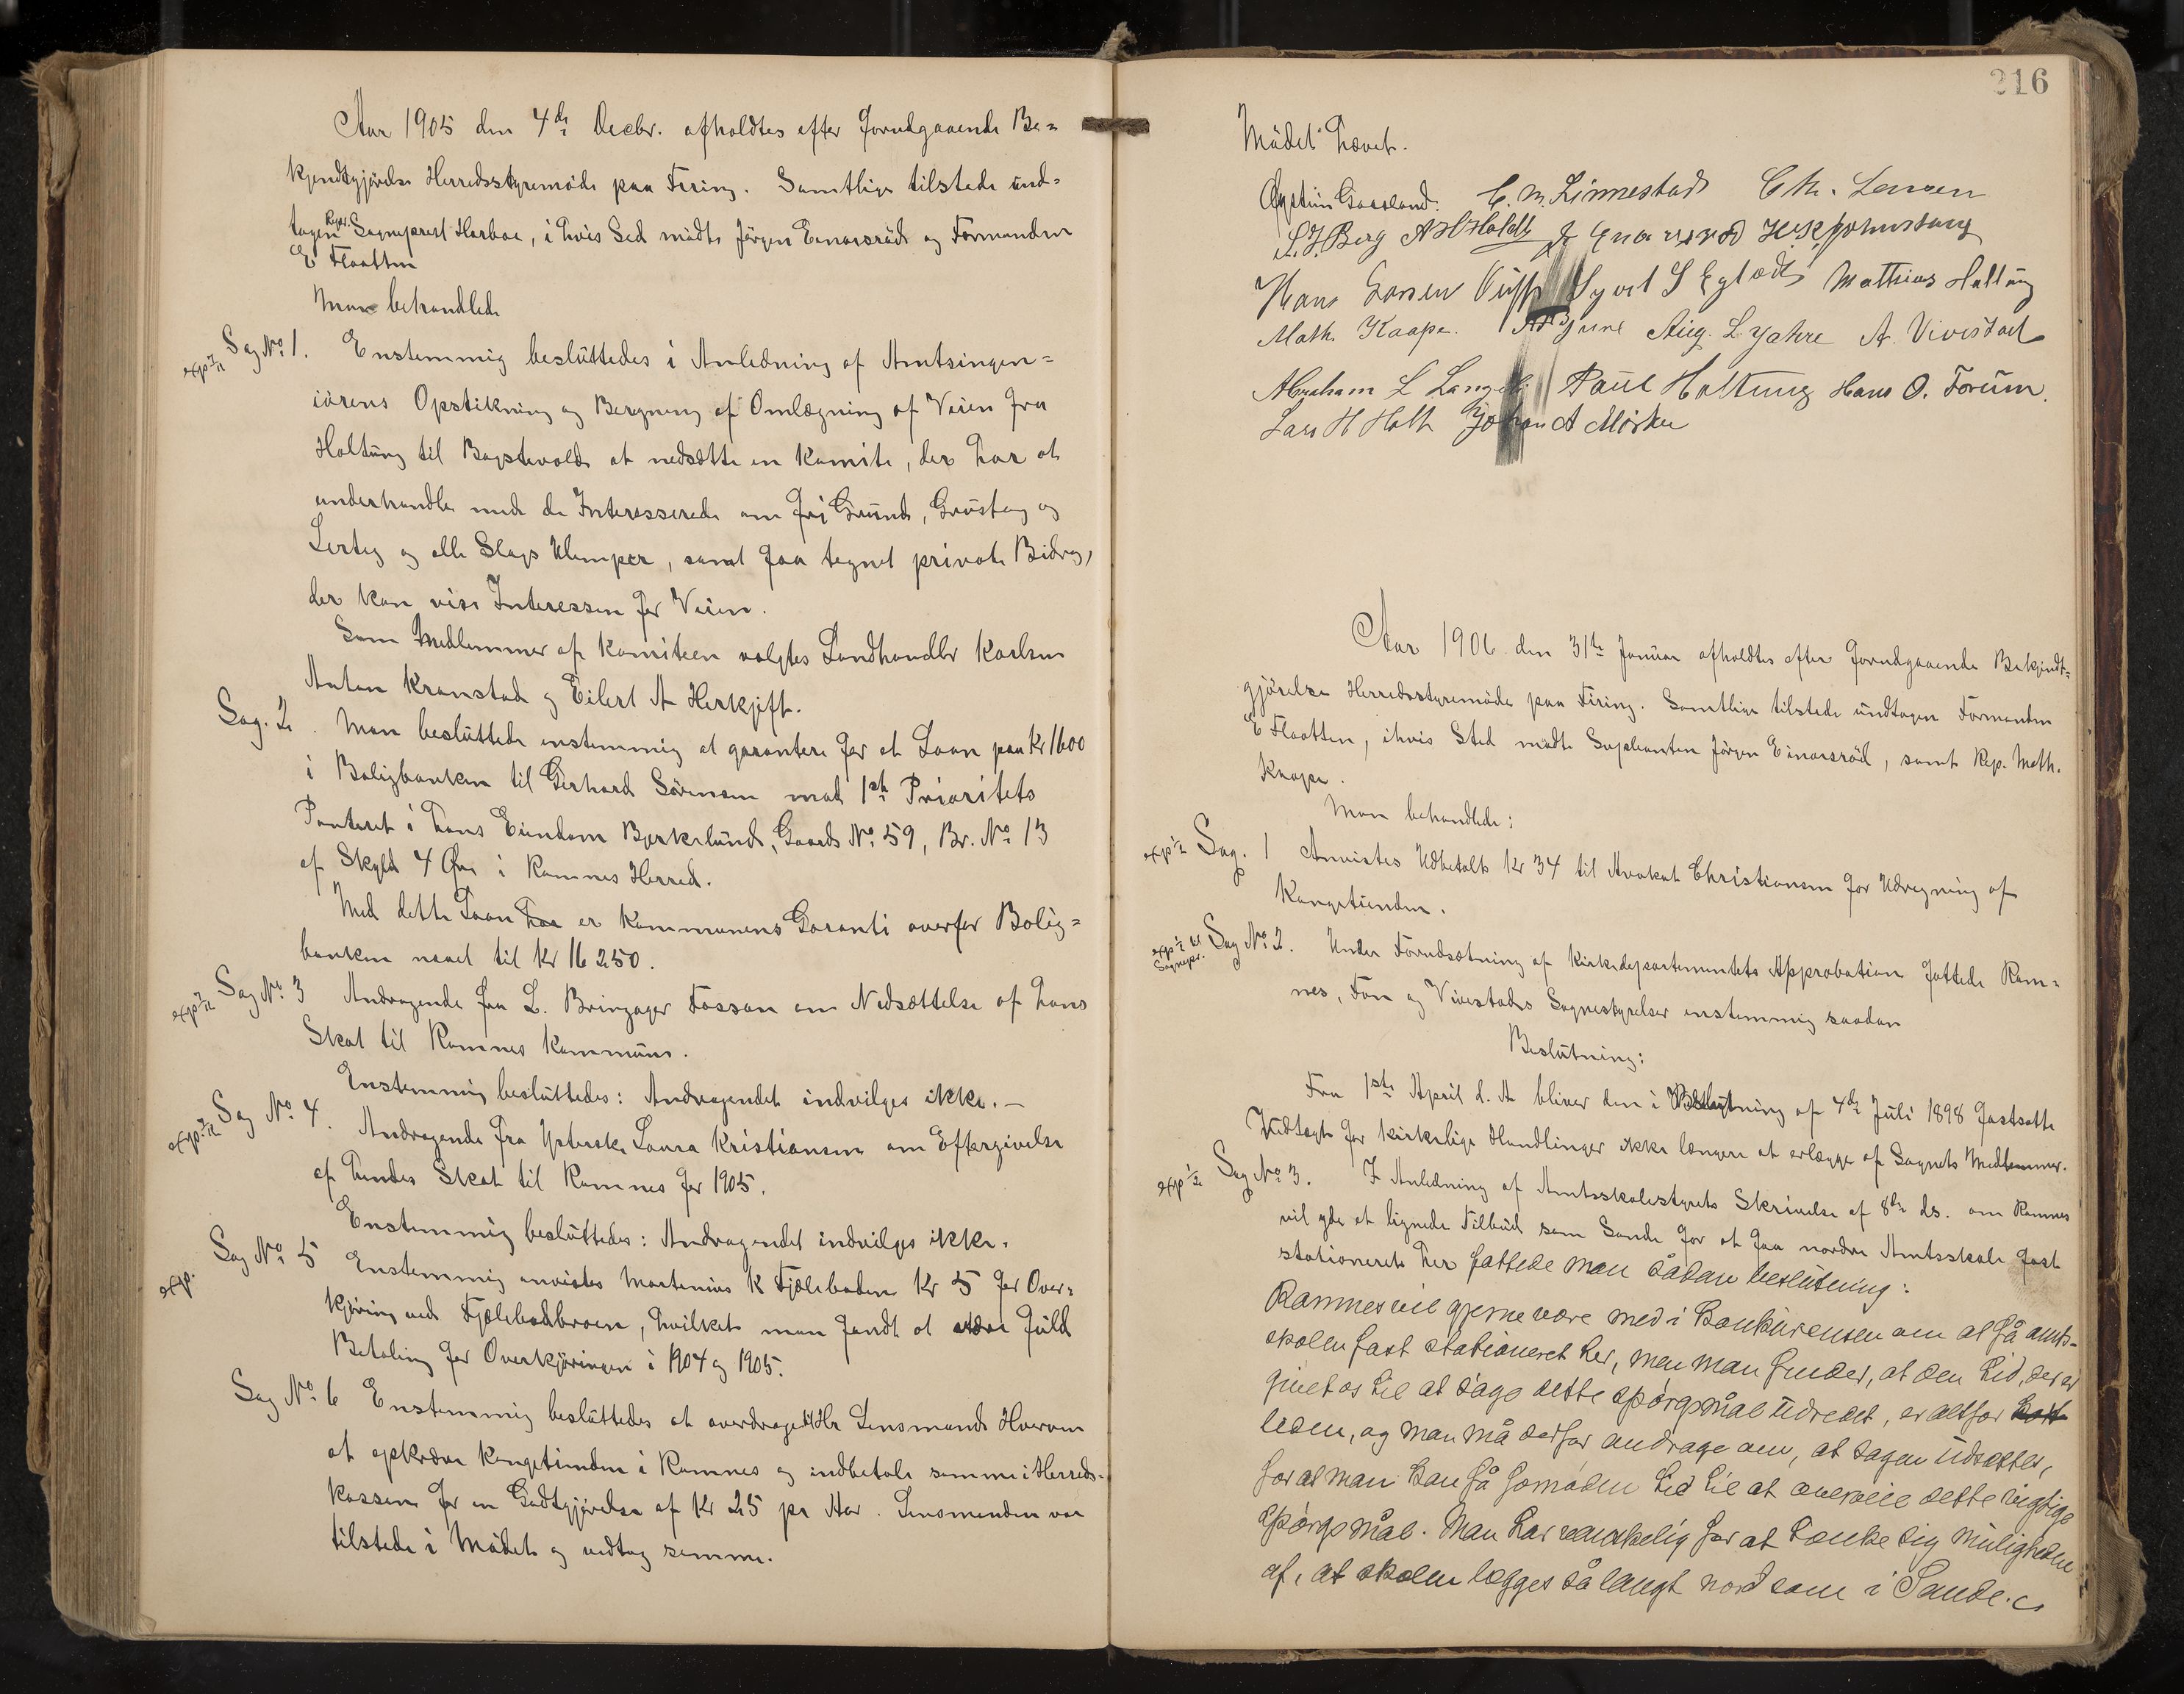 Aar 1905 den 4de Decbr. afholdtes efter forudgaaende Be=
kjendtgjörelse Herredsstyremöde paa Firing. Samtlige tilstede und=
tagen Repr. Sogneprest Harboe, i hvis Sted mödte Jörgen Einarsröd og Formanden
E Flaatten
Man behandlede
exp 7/12 Sag No. 1. Enstemmig besluttedes i Anledning af Amtsingen=
iörens Opstikning og Beregning af Omlægning af Veien fra
Holtung til Bogstevold at nedsætte en Komite, der har at
underhandle med de Interesserede om fri Grund, Grustag og
Lertag og alle Slags Ulemper, samt faa tegnet private Bidrag,
der kan vise Interessen for Veien.
Som Medlemmer af Komiteen valgtes Landhandler Karlsen
Anton Kranstad og Eilert A Herkjift.
Sag. 2. Man besluttede enstemmig at garantere for et Laan paa Kr 1600
i Boligbanken til Gerhard Sörensen mod 1ste Prioritets
Panteret i hans Eiendom Bjerkelund, Gaards No. 59, Br. No. 13
af Skyld 4 Öre i Ramnes Herred.
Med dette Laan har er Kommunens Garanti overfor Bolig=
banken naaet til Kr 16250.
exp 7/12 Sag No. 3 Andragende fra L. Bringager Fossan om Nedsættelse af hans
Skat til Ramnes Kommune.
Enstemmig besluttedes: Andragendet indvilges ikke. —
exp 7/12 Sag No. 4. Andragende fra Laura Kristiansen om Eftergivelse
af hendes Skat til Ramnes for 1905.
Enstemmig besluttedes: Andragendet indvilges ikke.
exp. Sag No. 5 Enstemmig anvistes Martinius K Fjælebaden Kr 5 for Over=
kjöring ved Fjælebadbroen, hvilket man fandt at være fuld
Betaling for Overkjöringen i 1904 og 1905.
Sag No. 6 Enstemmig besluttedes at overdrage Hr Lensmand Hvaren
at opkræve Kongetienden i Ramnes og indbetale samme i Herreds-
kassen for en Godtgjörelse af Kr 25 pr Aar. Lensmanden var
tilstede i Mödet og vedtog samme.
216
Mödet hævet.
C. M. Linnestad Chr. Larsen
L. J. Berg J Enarsröd
Hans Larsen Syvert S Mathias Holtung
Math. Kaape. Aug. L Jahre A. Vivestad
Abraham L Paul Holtung Hans O. Forum.
Lars H Holt Johan A Mörken
Aar 1906 den 31te Januar afholdtes efter forudgaaende Bekjendt=
gjörelse Herredsstyremöde paa Firing. Samtlige tilstede undtagen Formanden
E Flaatten, ihvis Sted mödte Supleanten Jörgen Einarsröd, samt Rep. Math.
Kaape.
Man behandlede:
exp 1/2 Sag. 1 Anvistes Udbetalt Kr 34 til Avokat Christiansen for Udregning af
Kongetienden.
exp 1/2 til Sognepr. Sag No. 2. Under Forudsætning af Kirkedepartementets Approbation fattede Ram=
nes, Fon og Vivestads Sognestyrelser enstemmig saadan
Beslutning:
Fra 1ste April d. A bliver den i Beslutning af 4de Juli 1898 fastsatte
Vedtægt for kirkelige Handlinger ikke længere at erlægge af Sognets Medlemmer.
exp 1/2 Sag No. 3. I Anledning af Amtsskolestyrets Skrivelse af 8de ds. om Ramnes
vil yde et lignede Tilbud som Sande for at faa nordre Amtsskole fast
stationeret her fattede man sådan beslutning:
Ramnes vil gjerne være med i Konkurensen om at få amts-
skolen fast stationeret her, men man finder, at den tid, der er
givet os til at såge dette spörgsmål udredet, er altfor kort
liden, og man må derfor andrage om, at sagen udsættes,
for at man kan få fornöden tid til at overveie dette vigtige
spörgsmål. Man har vanskelig for at tænke sig muligheden
af, at skolen lægges så langt nord som i Sande.